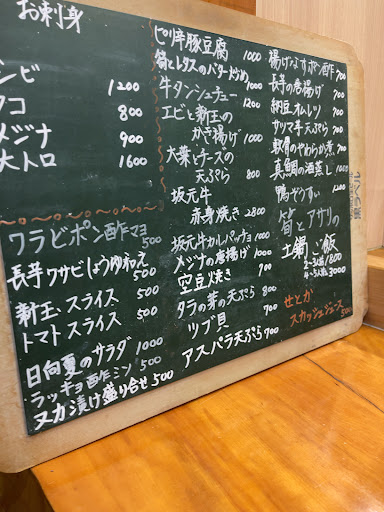 お刺身
ンビ 1200
コ 800
メジナ 900
大入口 1600
ワラビポン酢マヨ 500
長芋ワサビしょうゆ和え 500
新玉スライス 500
トマトスライス 500
日向夏のサラダ 1000
ラッキョ酢ミン 500
ヌカ漬け盛り合せ 500
ピリ辛豚豆腐 1000
筍とレタスのバター炒め 1000
牛タンシチュー 1200
エビと新玉の
かき揚げ 1000
大葉とナースの
天ぷら 800
坂元牛
赤身焼き 2800
坂元牛カルパッチョ 1000
メジナの唐揚げ 1000
空豆焼き 700
タラの芽の天ぷら 800
ツブ貝 700
アスパラ天ぷら 700
揚げなすポン酢 700
長芋の唐揚げ 700
納豆オムレツ 700
サツマ芋天ぷら 700
軟骨のやわらか煮 700
真鯛の酒蒸し 1000
鴨ぞうすい 1200
筍とアサリの
土鍋ご飯
2~3人前 1800
4~5人前 3000
せとか
スカッシュジュース 500